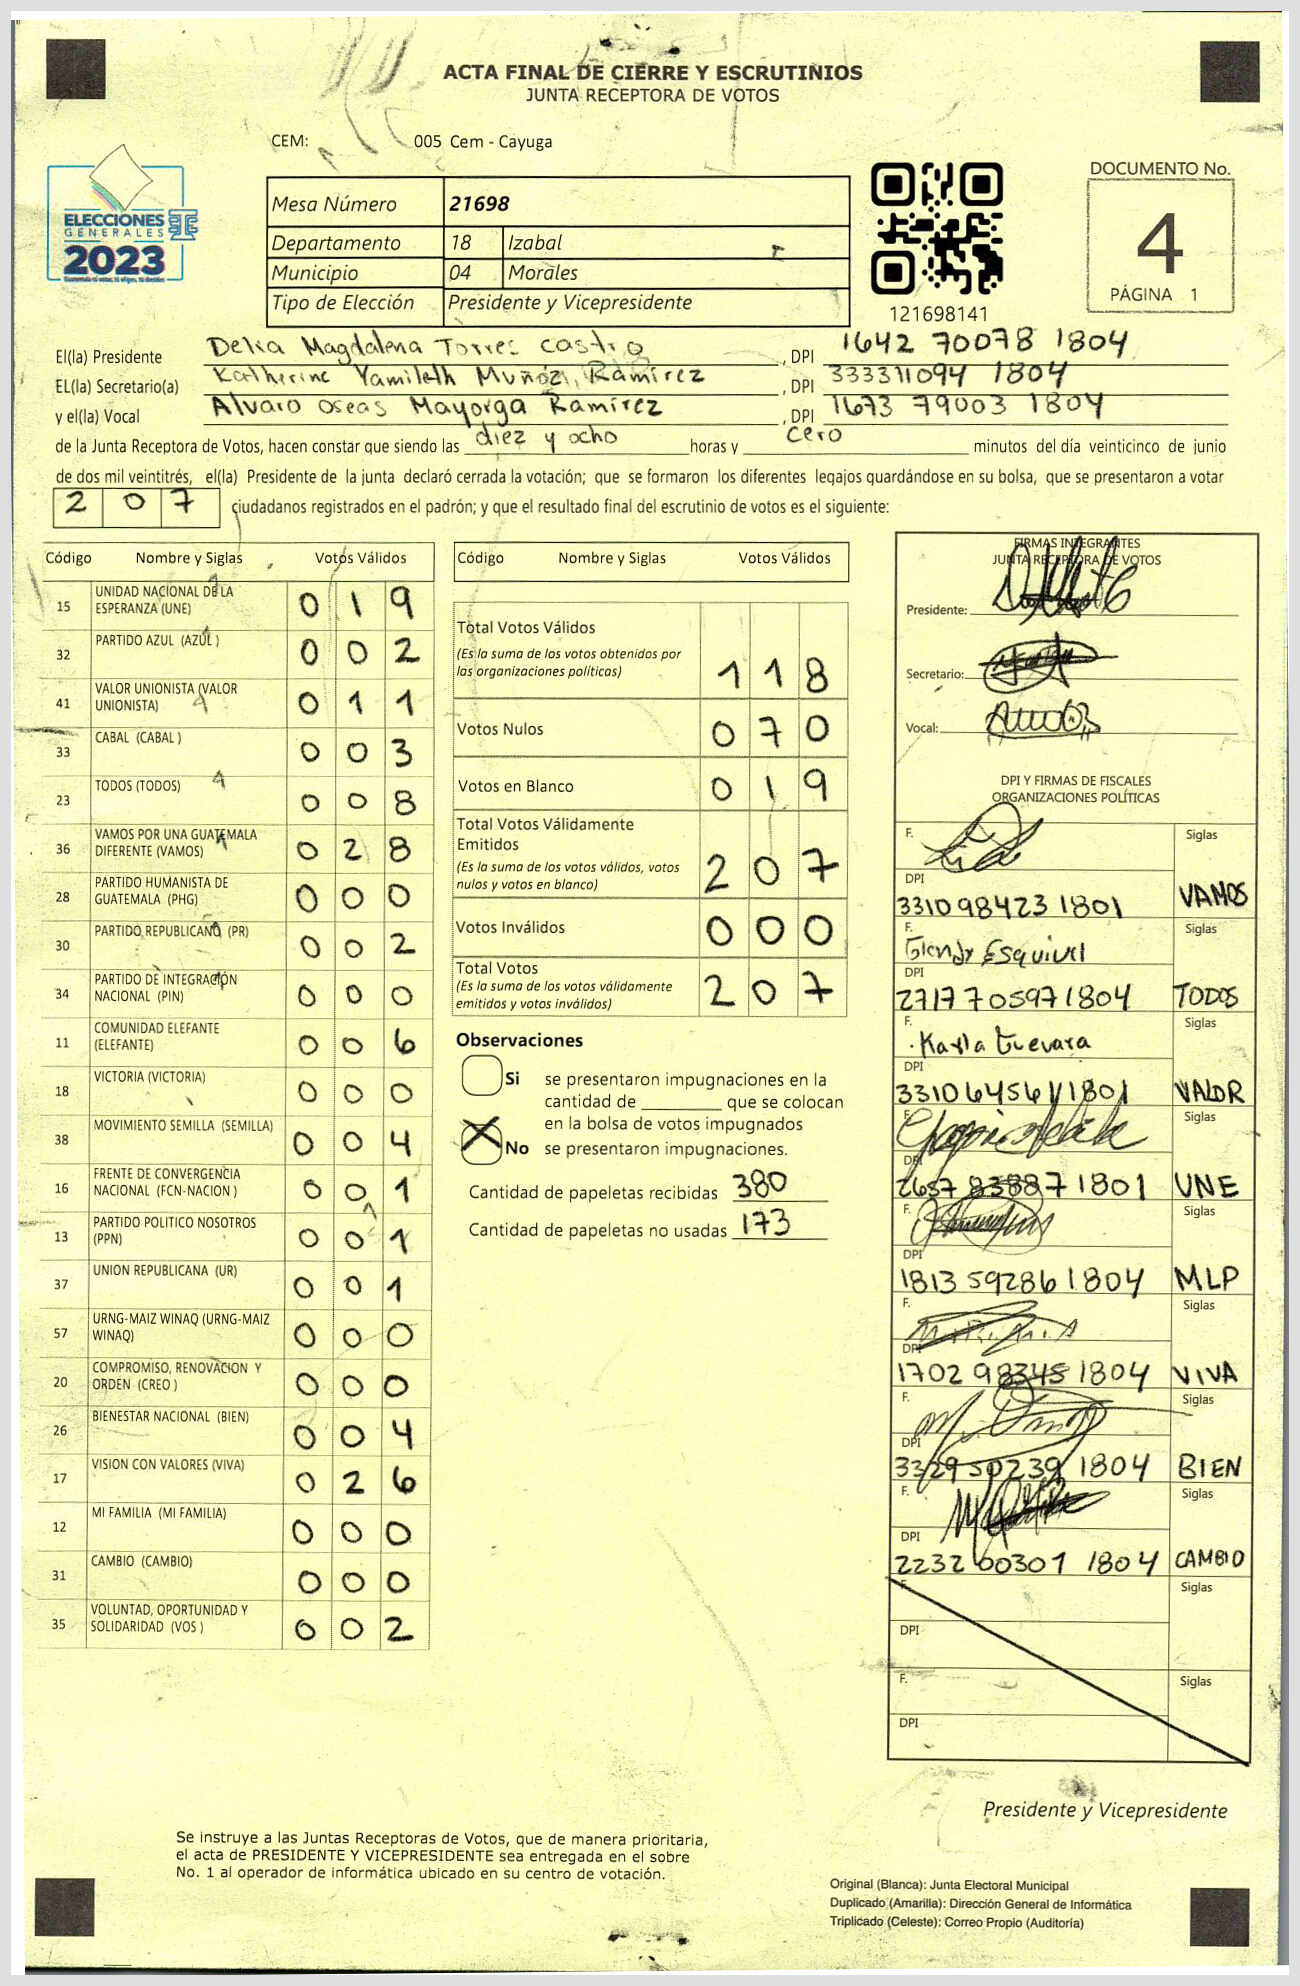 ACTA FINAL DE CIERRE Y ESCRUTINIOS
JUNTA RECEPTORA DE VOTOS
CEM: 005 Cem - Cayuga
ELECCIONES
GENERALES
2023
Mesa Número 21698
Departamento 18 Izabal
Municipio 04 Morales
Tipo de Elección Presidente y Vicepresidente
121698141
DOCUMENTO No.
4
PÁGINA 1
El(la) Presidente Delia Magdalena Torres Castro, DPI 1642 70078 1804
EL(la) Secretario(a) Katherine Yamileth Muñóz, Ramírez, DPI 333311094 1804
y el(la) Vocal Alvaro Oseas Mayorga Ramírez, DPI 1673 79003 1804
de la Junta Receptora de Votos, hacen constar que siendo las diez y ocho horas y cero minutos del día veinticinco de junio
de dos mil veintitrés, el(la) Presidente de la junta declaró cerrada la votación; que se formaron los diferentes legajos guardándose en su bolsa, que se presentaron a votar
207 ciudadanos registrados en el padrón; y que el resultado final del escrutinio de votos es el siguiente:
Código Nombre y Siglas Votos Válidos
15 UNIDAD NACIONAL DE LA ESPERANZA (UNE) 019
32 PARTIDO AZUL (AZUL ) 002
41 VALOR UNIONISTA (VALOR UNIONISTA) 011
33 CABAL (CABAL ) 003
23 TODOS (TODOS) 008
36 VAMOS POR UNA GUATEMALA DIFERENTE (VAMOS) 028
28 PARTIDO HUMANISTA DE GUATEMALA (PHG) 000
30 PARTIDO REPUBLICANO (PR) 002
34 PARTIDO DE INTEGRACIÓN NACIONAL (PIN) 000
11 COMUNIDAD ELEFANTE (ELEFANTE) 006
18 VICTORIA (VICTORIA) 000
38 MOVIMIENTO SEMILLA (SEMILLA) 004
16 FRENTE DE CONVERGENCIA NACIONAL (FCN-NACION ) 001
13 PARTIDO POLITICO NOSOTROS (PPN) 001
37 UNION REPUBLICANA (UR) 001
57 URNG-MAIZ WINAQ (URNG-MAIZ WINAQ) 000
20 COMPROMISO, RENOVACION Y ORDEN (CREO ) 000
26 BIENESTAR NACIONAL (BIEN) 004
17 VISION CON VALORES (VIVA) 026
12 MI FAMILIA (MI FAMILIA) 000
31 CAMBIO (CAMBIO) 000
35 VOLUNTAD, OPORTUNIDAD Y SOLIDARIDAD (VOS ) 002
Código Nombre y Siglas Votos Válidos
Total Votos Válidos
(Es la suma de los votos obtenidos por
las organizaciones políticas) 118
Votos Nulos 070
Votos en Blanco 019
Total Votos Válidamente
Emitidos
(Es la suma de los votos válidos, votos
nulos y votos en blanco) 207
Votos Inválidos 000
Total Votos
(Es la suma de los votos válidamente
emitidos y votos inválidos) 207
Observaciones
Si se presentaron impugnaciones en la
cantidad de ________ que se colocan
en la bolsa de votos impugnados
No se presentaron impugnaciones.
Cantidad de papeletas recibidas 380
Cantidad de papeletas no usadas 173
FIRMAS INTEGRANTES
JUNTA RECEPTORA DE VOTOS
Presidente:
Secretario:
Vocal:
DPI Y FIRMAS DE FISCALES
ORGANIZACIONES POLÍTICAS
F. Siglas
DPI
331098423 1801 VAMOS
F. Glendy Esquivel Siglas
DPI
2717705971804 TODOS
F. Karla Guevara Siglas
DPI
331064561 1801 VALOR
F. Siglas
DPI
2657 83887 1801 UNE
F. Siglas
DPI
1813 59286 1804 MLP
F. Siglas
DPI
1702 98345 1804 VIVA
F. Siglas
DPI
332950239 1804 BIEN
F. Siglas
DPI
2232 00301 1804 CAMBIO
F. Siglas
DPI
F. Siglas
DPI
Presidente y Vicepresidente
Se instruye a las Juntas Receptoras de Votos, que de manera prioritaria,
el acta de PRESIDENTE Y VICEPRESIDENTE sea entregada en el sobre
No. 1 al operador de informática ubicado en su centro de votación.
Original (Blanca): Junta Electoral Municipal
Duplicado (Amarilla): Dirección General de Informática
Triplicado (Celeste): Correo Propio (Auditoría)